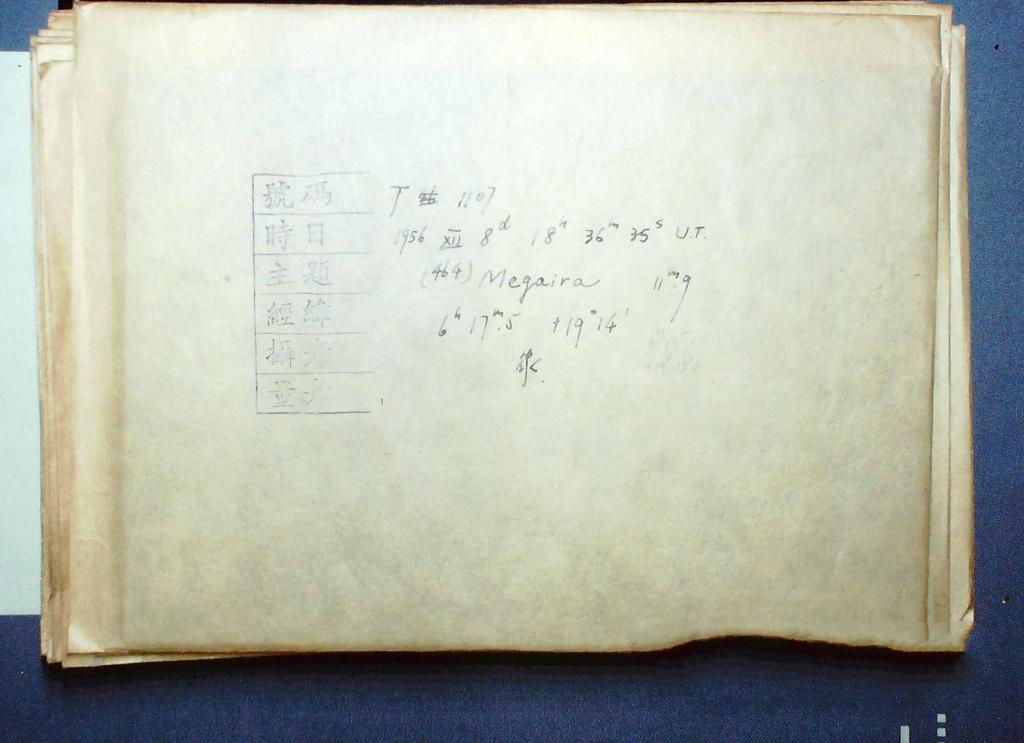 號碼 丁 1107
時日 1956 XII 8ᵈ 18ʰ 36ᵐ 35ˢ U.T.
主題 (464) Megaira 11ᵐ.9
經緯 6ʰ 17ᵐ.5 +19°14'
攝者
量者